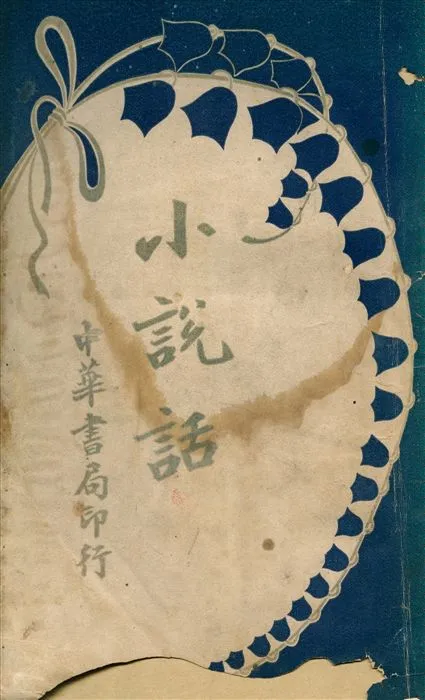 小說話
中華書局印行